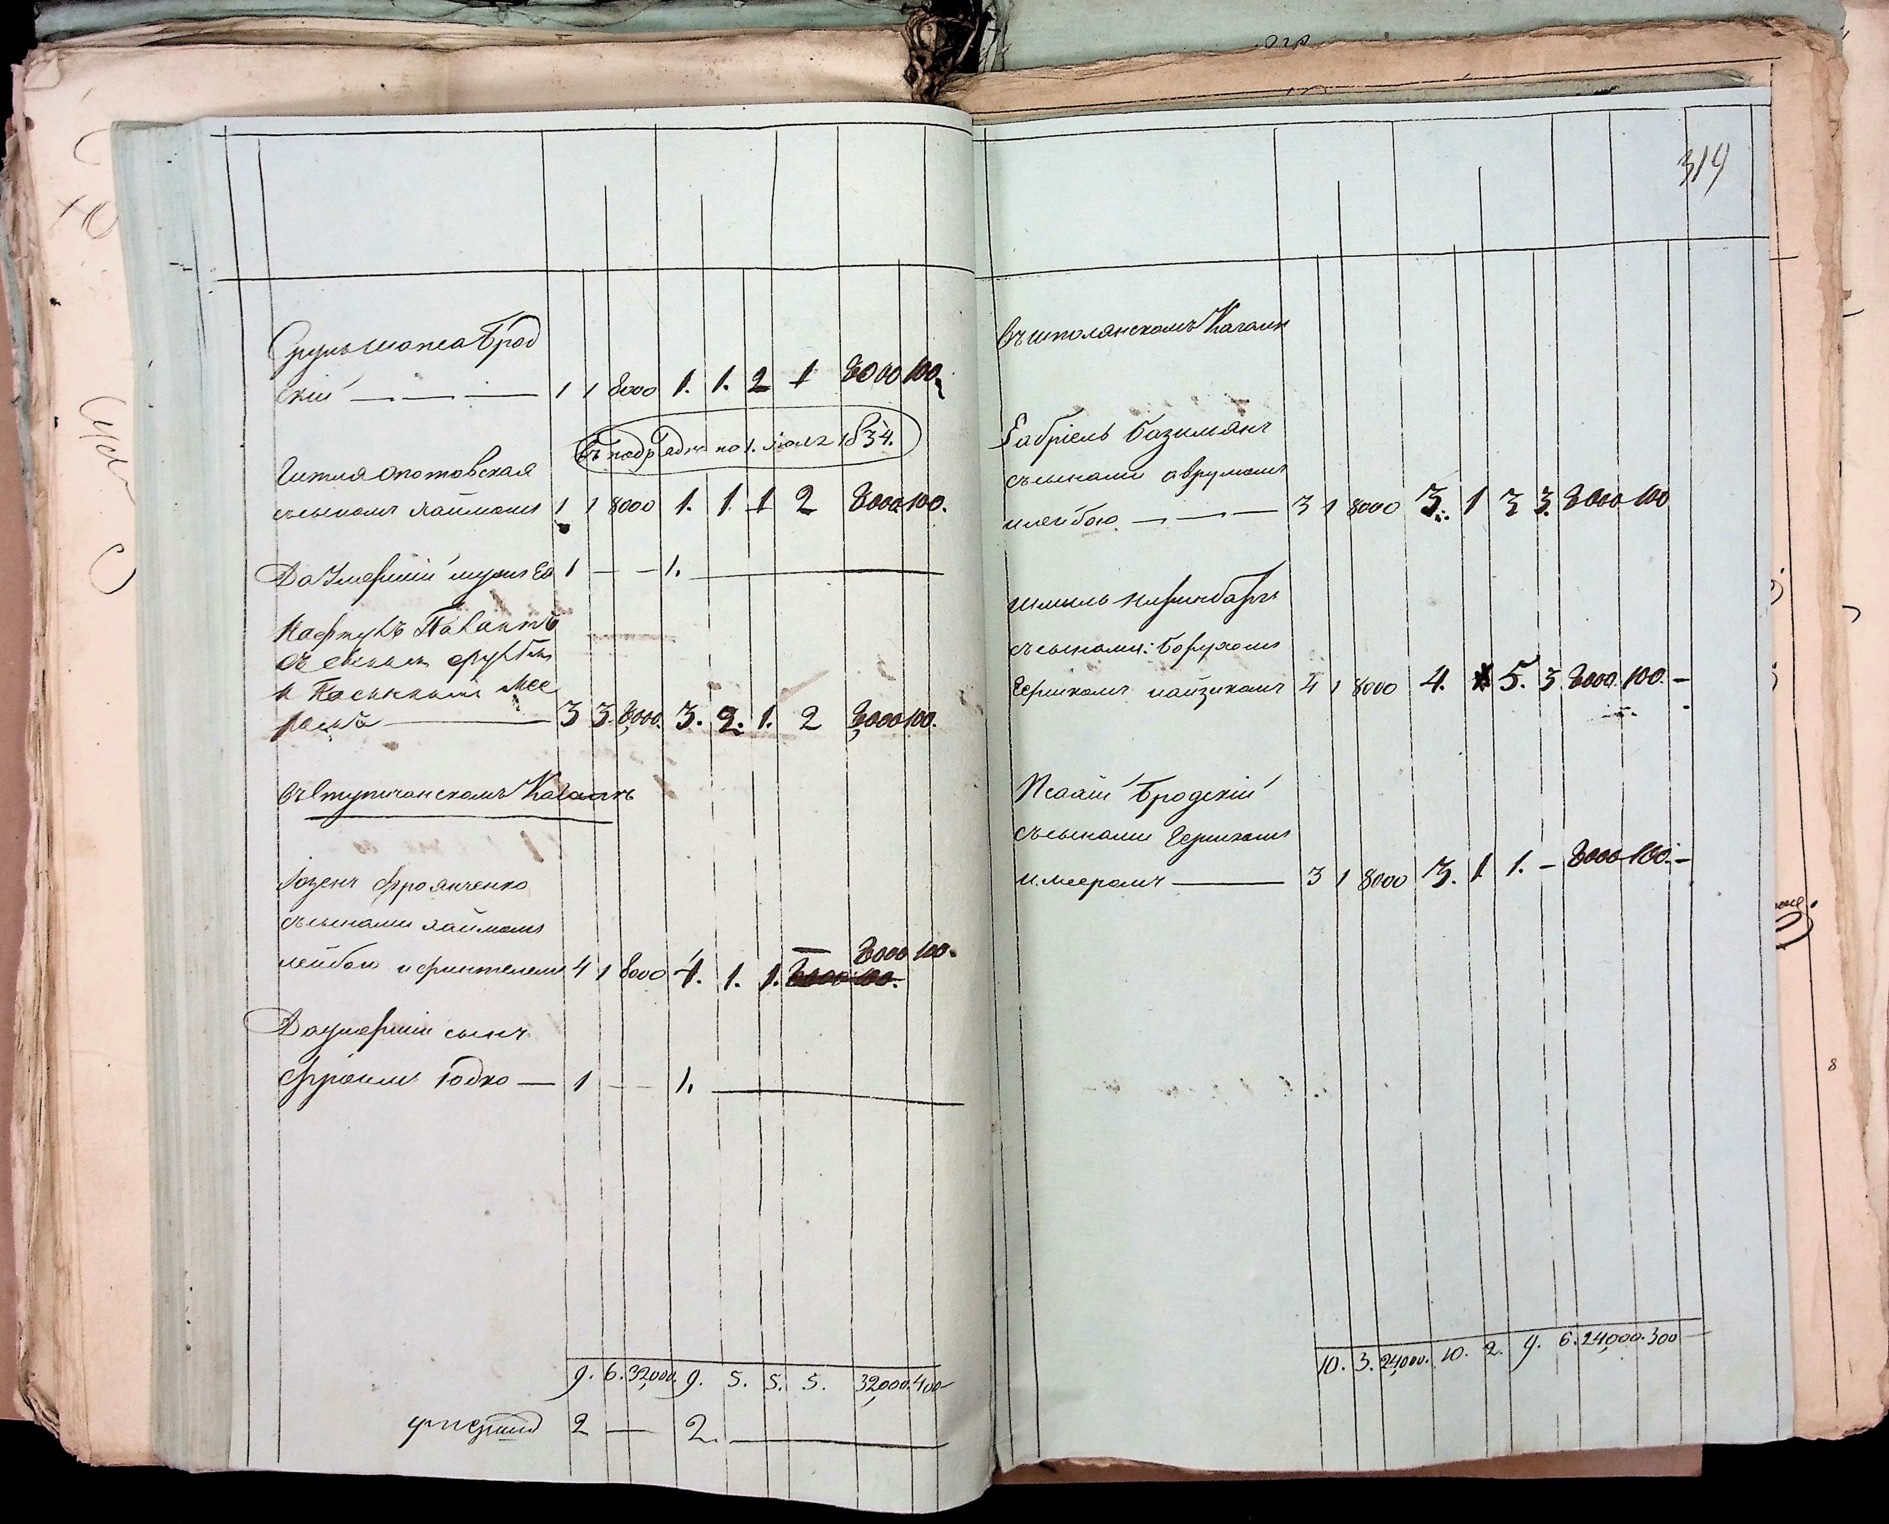 319
Сруль Шопса Брод
скій — — — 1 1 8000 1. 1. 2 1 8000 100.
въ подрядѣ по 1. 1834.
Гитля Опотовская
съ сыномъ Хаймомъ 1 1 8000 1. 1. 1 2 8000 100.
Да Умершій мужъ Ея 1 — — 1. —
Нафтулъ
съ
и Пасынкомъ Мее
ромъ — 3 3. 8,000. 3. 2. 1. 2 8,000 100.
въ Ступичанскомъ Кагалѣ
Лозенъ Фроянченко
съ сынами Хаймомъ
Лейбою и Финтелемъ 4 1 8000 4. 1. 1. — 8000 100.
8000 100.
Да умершій сынъ
Фроимъ Годко — 1 — — 1. —
9. 6. 32,000. 9. 5. 5. 5. 32,000. 400
умершихъ 2 — 2. —
въ Шполянскомъ Кагалѣ
Габріель Базилиянъ
съ сынами Аврумомъ
и Лейбою — — — 3 1 8000 3. 1 3 3. 8000 100
Шмуль
съ сынами: Борухомъ
Гершкомъ Найзикомъ 4 1 8000 4. 5. 3 8000. 100. —
Исаій Бродскій
съ сынами Гершкомъ
и Мееромъ — 3 1 8000 3. 1 1. — 8000 100. —
10. 3. 24,000. 10. 2. 9. 6. 24,000. 300 —